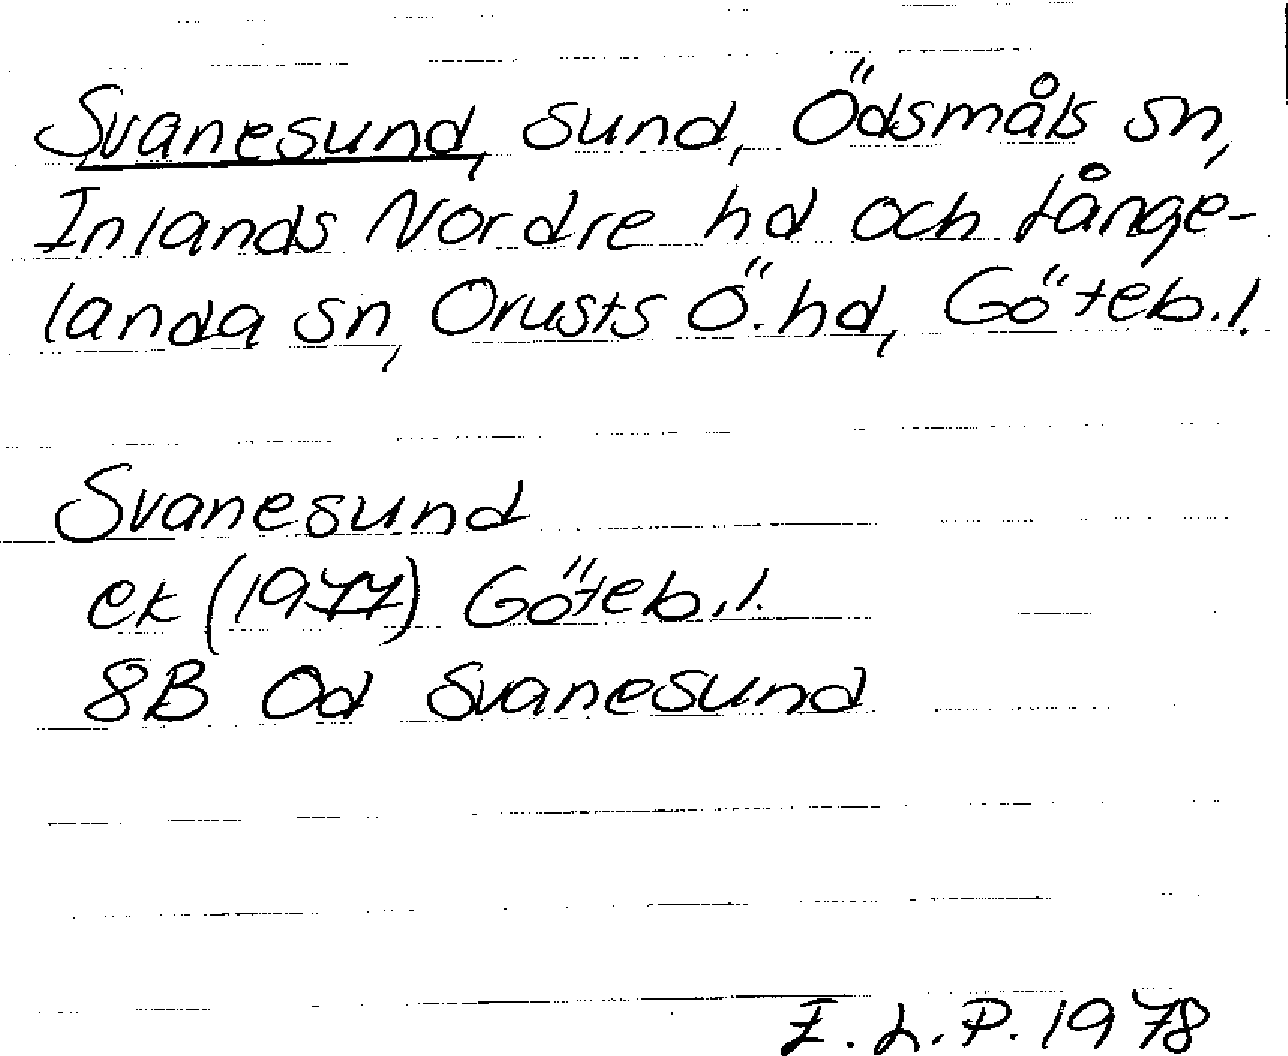 Svanesund, sund, Ödsmåls sn,
Inlands Nordre hd och Långe-
landa sn, Orusts Ö. hd, Göteb. l.
Svanesund
ek (1977) Göteb. l.
8B Od Svanesund
I. L. P. 1978